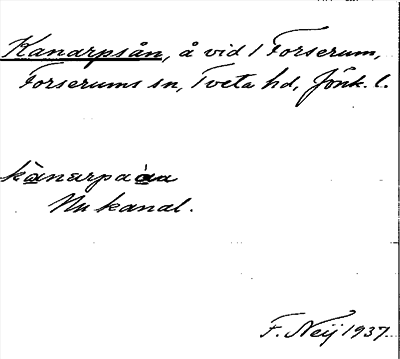 Kanarpsån, å vid l Forserum,
Forserums sn, Tveta hd, Jönk. l.
Nu kanal.
F. Neij 1937.